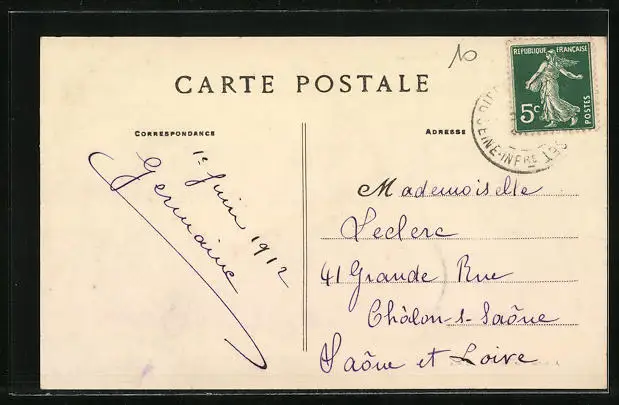 10
REPUBLIQUE FRANÇAISE
5c
POSTES
SEINE-INFRE
CARTE POSTALE
CORRESPONDANCE
ADRESSE
1e Juin 1912
Germaine
Mademoiselle
Leclerc
41 Grande Rue
Châlon-s-Saône
Saône et Loire